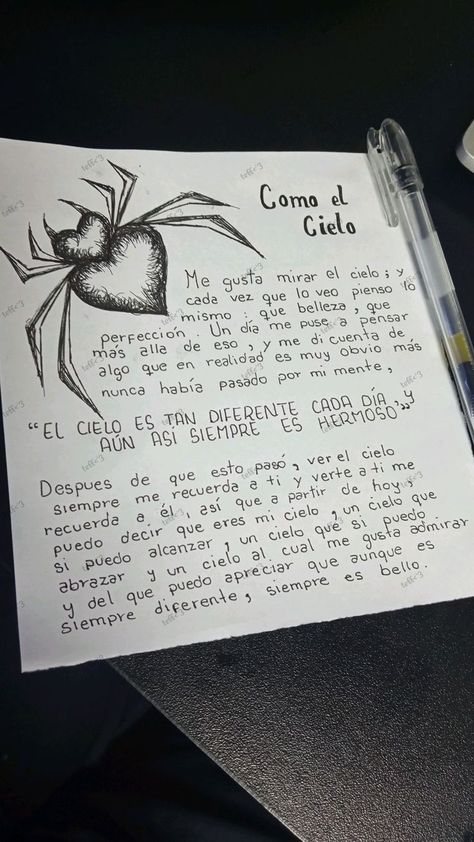 Como el
Cielo
Me gusta mirar el cielo; y
cada vez que lo veo pienso lo
mismo: que belleza, que
perfección. Un día me puse a pensar
más alla de eso, y me di cuenta de
algo que en realidad es muy obvio más
nunca había pasado por mi mente,
“EL CIELO ES TAN DIFERENTE CADA DÍA, Y
AÚN ASÍ SIEMPRE ES HERMOSO”
Despues de que esto pasó, ver el cielo
siempre me recuerda a ti y verte a ti me
recuerda a él, así que a partir de hoy
puedo decir que eres mi cielo, un cielo que
si puedo alcanzar, un cielo que si puedo
abrazar y un cielo al cual me gusta admirar
y del que puedo apreciar que aunque es
siempre diferente, siempre es bello.
teff<3